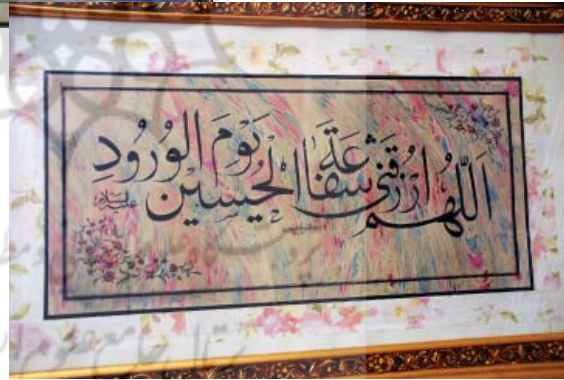 اَللّهُمَّ ارْزُقْنی شَفاعَةَ الْحُسَیْنِ علیه‌السلام یَوْمَ الْوُرُودِ